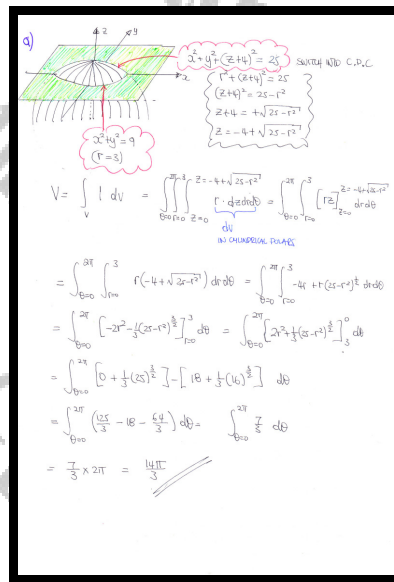 a)
z
y
x
x²+y²+(z+4)² = 25 SWITCH INTO C.P.C
r²+(z+4)² = 25
(z+4)² = 25-r²
z+4 = +√(25-r²)
z = -4+√(25-r²)
x²+y² = 9
(r=3)
V = ∫_V 1 dv = ∫_{θ=0}^{2π} ∫_{r=0}^{3} ∫_{z=0}^{z=-4+√(25-r²)} r · dz dr dθ = ∫_{θ=0}^{2π} ∫_{r=0}^{3} [rz]_{z=0}^{z=-4+√(25-r²)} dr dθ
dv
IN CYLINDRICAL POLARS
= ∫_{θ=0}^{2π} ∫_{r=0}^{3} r(-4+√(25-r²)) dr dθ = ∫_{θ=0}^{2π} ∫_{r=0}^{3} -4r + r(25-r²)^{1/2} dr dθ
= ∫_{θ=0}^{2π} [-2r² - 1/3(25-r²)^{3/2}]_{r=0}^{3} dθ = ∫_{θ=0}^{2π} [2r² + 1/3(25-r²)^{3/2}]_{3}^{0} dθ
= ∫_{θ=0}^{2π} [0 + 1/3(25)^{3/2}] - [18 + 1/3(16)^{3/2}] dθ
= ∫_{θ=0}^{2π} (125/3 - 18 - 64/3) dθ = ∫_{θ=0}^{2π} 7/3 dθ
= 7/3 × 2π = 14π/3